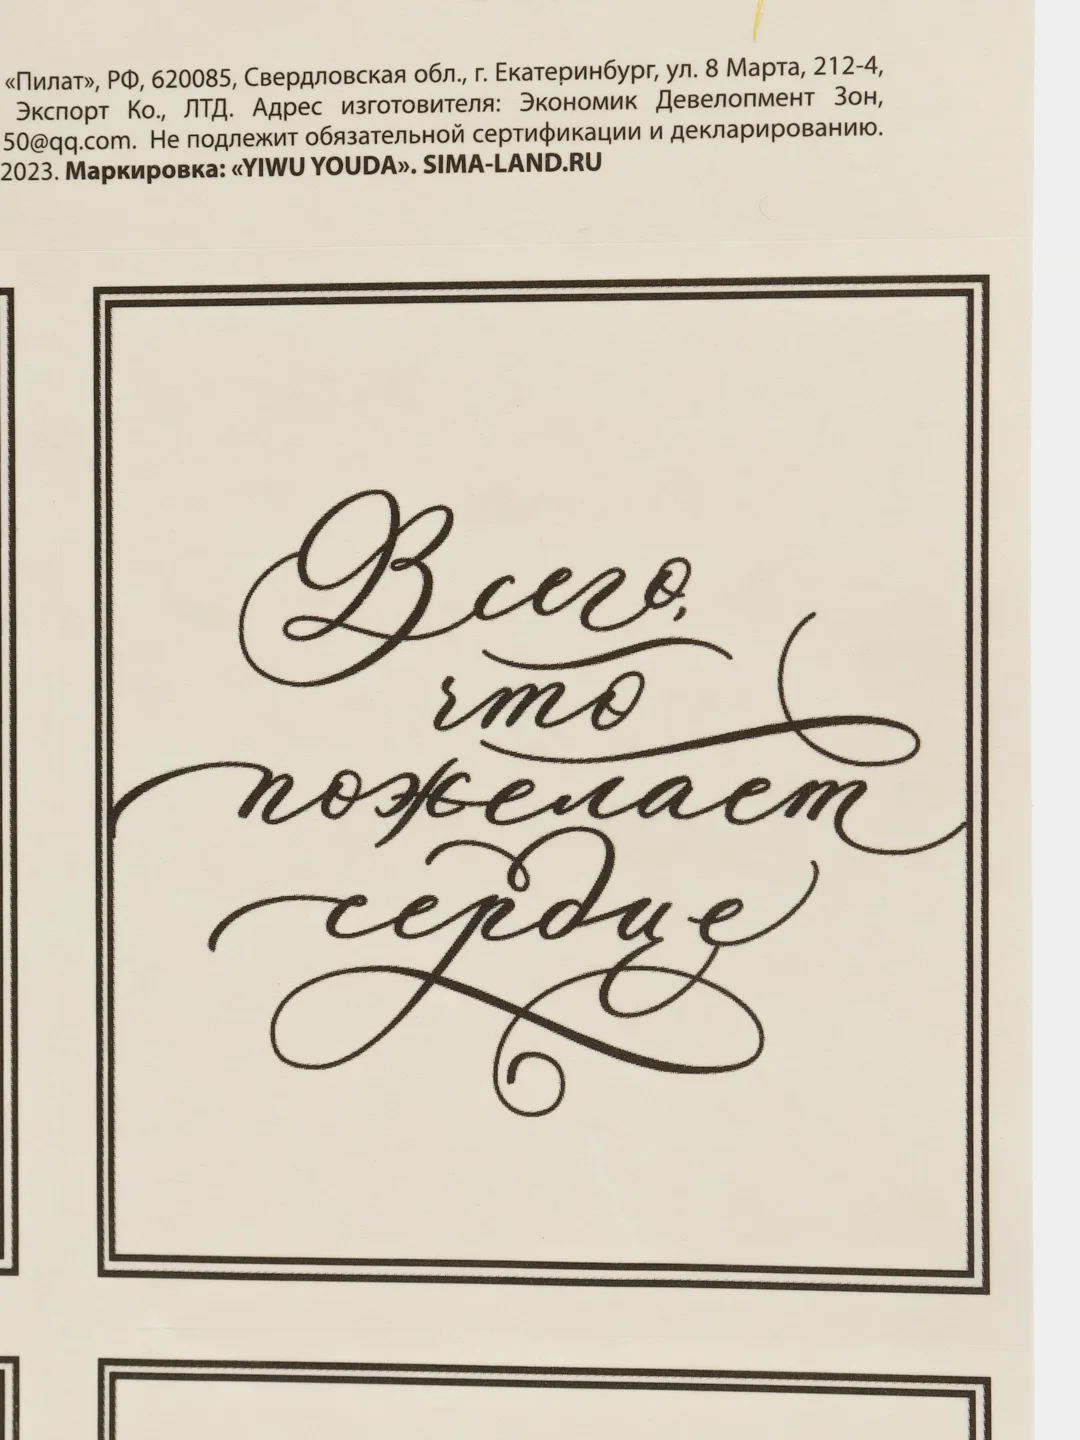 «Пилат», РФ, 620085, Свердловская обл., г. Екатеринбург, ул. 8 Марта, 212-4,
Экспорт Ко., ЛТД. Адрес изготовителя: Экономик Девелопмент Зон,
50@qq.com. Не подлежит обязательной сертификации и декларированию.
2023. Маркировка: «YIWU YOUDA». SIMA-LAND.RU
Всего,
что
пожелает
сердце